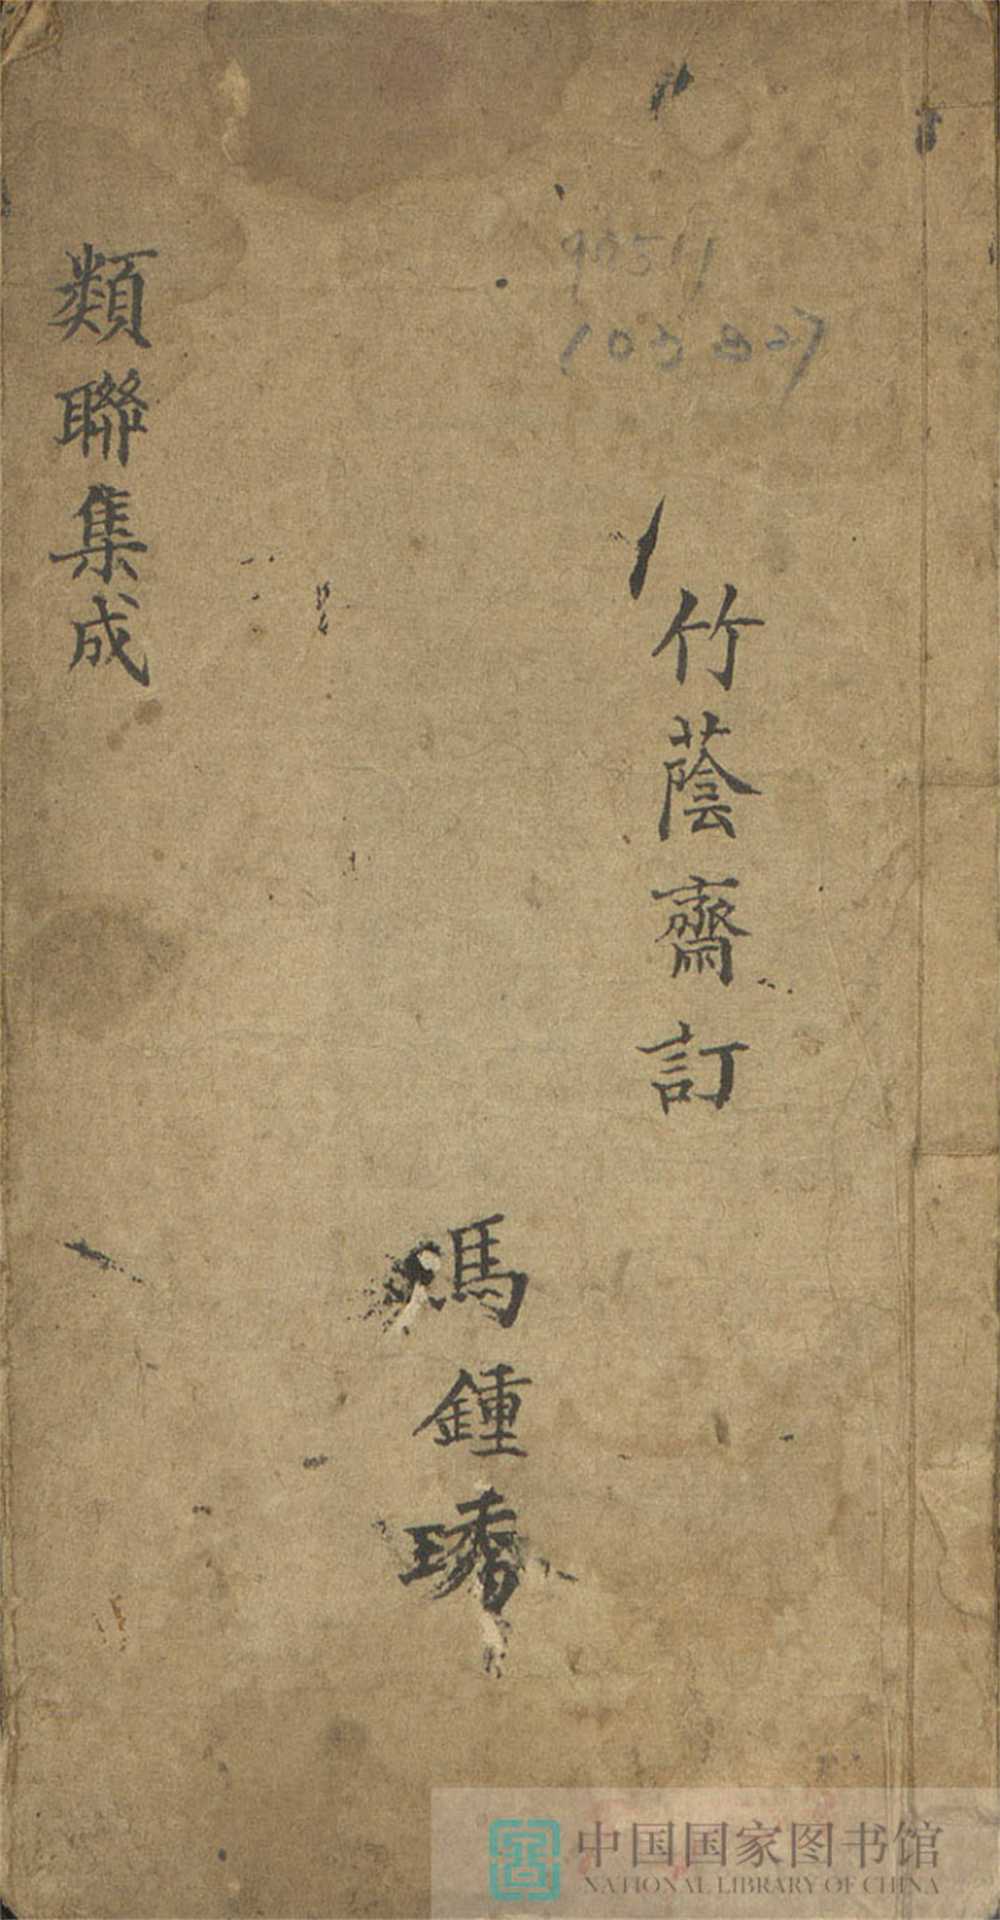 竹蔭齋訂
馮鍾琇
類聯集成
中国国家图书馆
NATIONAL LIBRARY OF CHINA